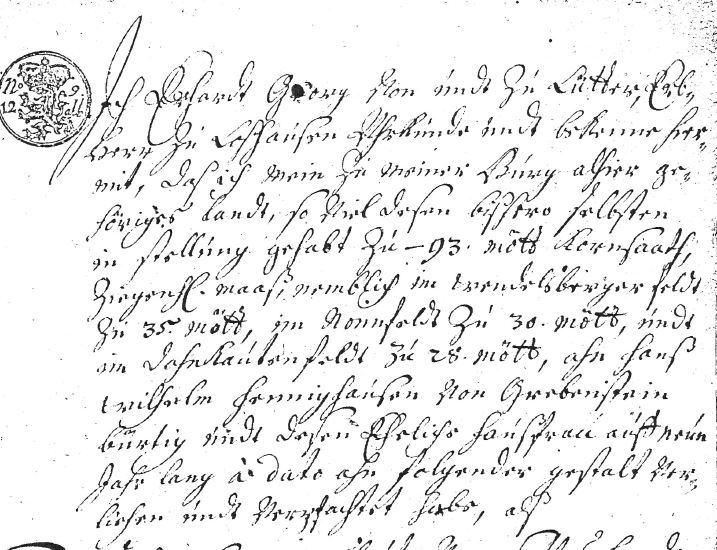 No 9
12 all
Ich Ekhardt Georg Von undt Zu Lutter, Erb-
herr Zu Loshausen Uhrkunde undt bekenne hier-
mit, daß ich mein Zu meiner Burg alhier ge-
höriges Landt, so Viel deßen bißhero selbsten
in stellung gehabt Zu - 93. mött Kornsaath,
Ziegenh. maaß, nemblich im wendelsberger feldt
Zu 35 mött, im Nonnfeldt Zu 30. mött, undt
im dohnkautenfeldt Zu 28. mött, ahn Hanß
Wilhelm Hennighausen Von Grebenstein
bürtig undt deßen Eheliche Hausfrau auff neun
Jahr lang à dato ahn folgender gestalt Ver-
liehen undt Verpfachtet habe, alß